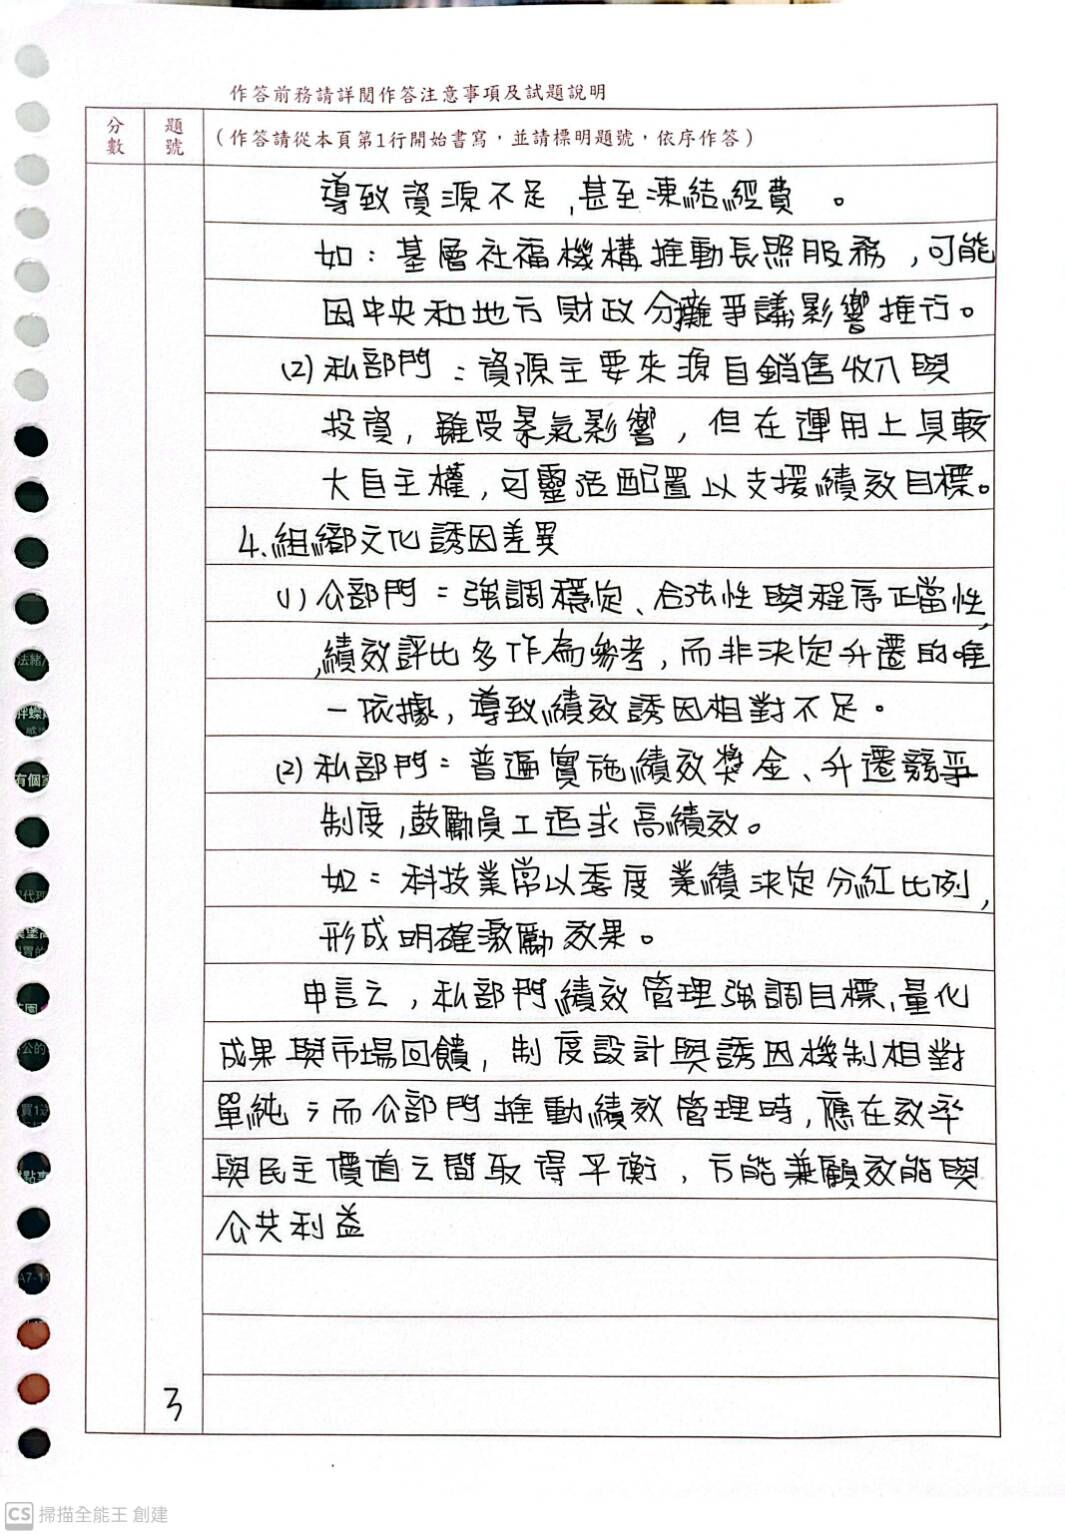 作答前務請詳閱作答注意事項及試題說明
分數
題號
(作答請從本頁第1行開始書寫，並請標明題號，依序作答)
導致資源不足,甚至凍結經費。
如：基層社福機構推動長照服務，可能
因中央和地方財政分攤爭議影響推行。
(2)私部門：資源主要來源自銷售收入與
投資，雖受景氣影響，但在運用上具較
大自主權，可靈活配置以支援績效目標。
4.組織文化誘因差異
(1)公部門：強調穩定、合法性與程序正當性，
績效評比多作為參考，而非決定升遷的唯
一依據，導致績效誘因相對不足。
(2)私部門：普遍實施績效獎金、升遷競爭
制度，鼓勵員工追求高績效。
如：科技業常以季度業績決定分紅比例，
形成明確激勵效果。
申言之，私部門績效管理強調目標、量化
成果與市場回饋，制度設計與誘因機制相對
單純；而公部門推動績效管理時，應在效率
與民主價值之間取得平衡，方能兼顧效能與
公共利益
3
法緒
有個
代理
公的
買1送
A7-1
CS 掃描全能王 創建